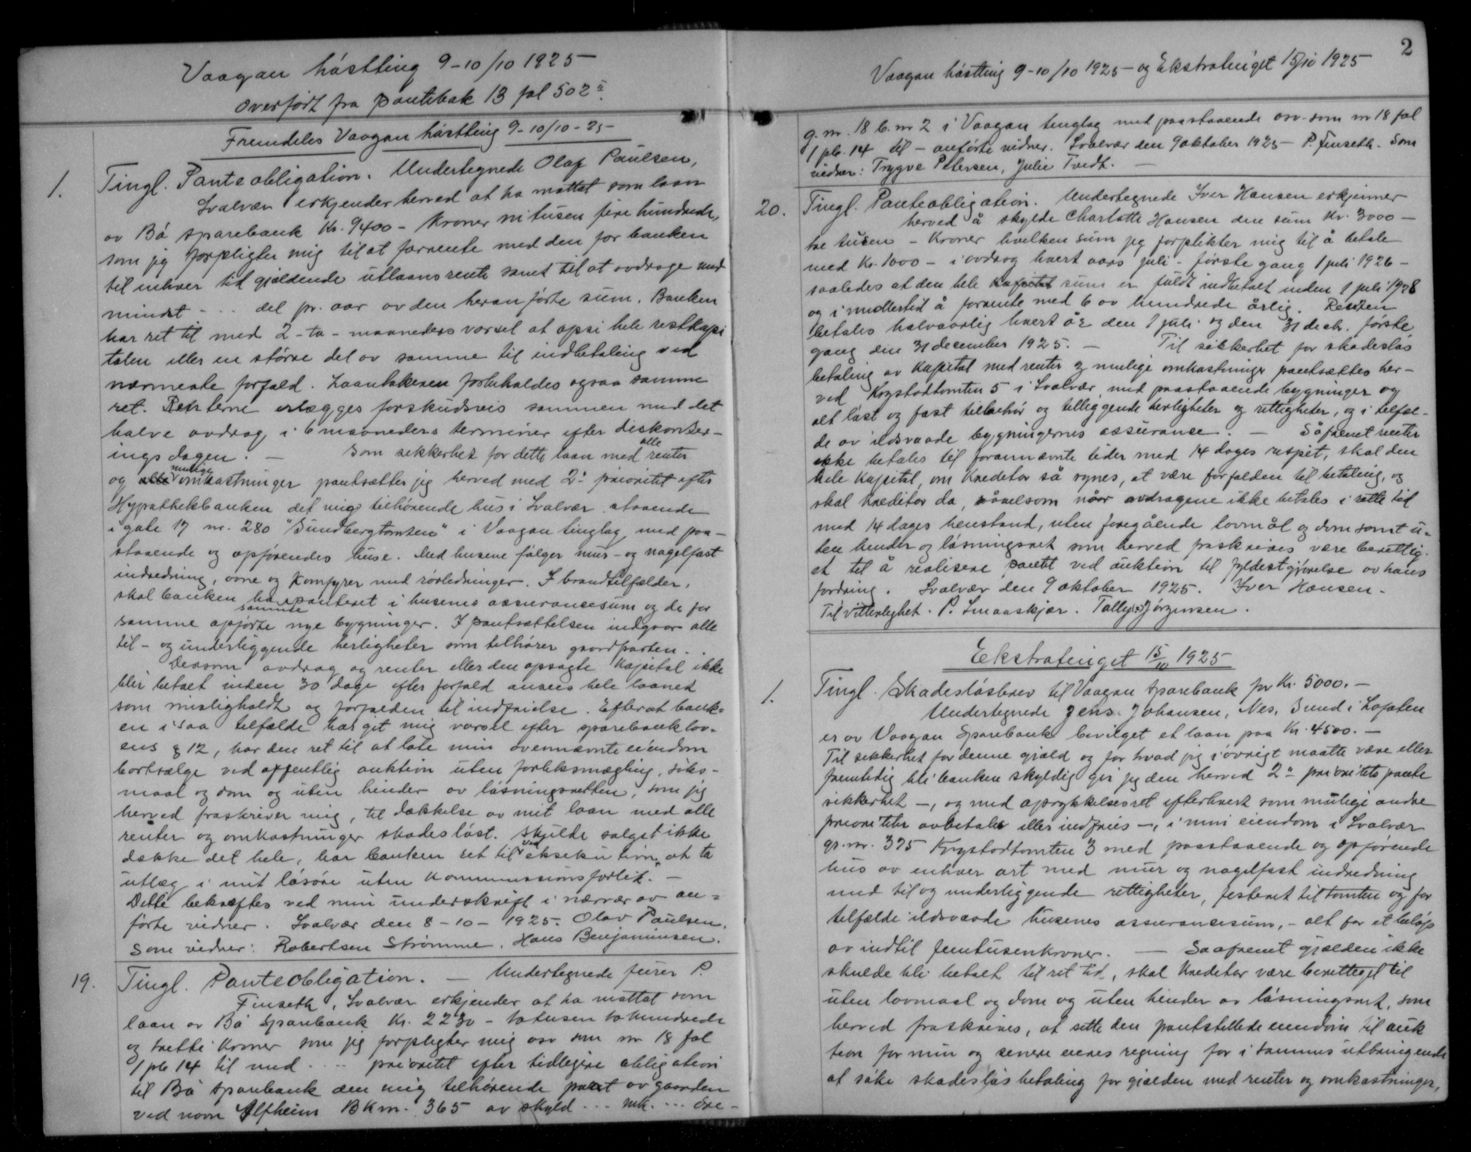 Vaagan høstting 9-10/10 1925
overført fra pantebok 13 fol 502
Fremdeles Vaagan høstting 9-10/10-25
1. Tingl. Panteobligation. Undertegnede Olaf Paulsen,
Svolvær erkjender herved at ha mottat som laan
av Bø Sparebank Kr. 9400 - Kroner nitusen fire hundrede,
som jeg forpligter mig til at forrente med den for banken
til enhver tid gjældende utlaansrente samt til at avdrage med
mindst - .. del pr. aar av den heranførte sum. Banken
har ret til med 2-to-maaneders varsel at opsi hele restkapi
talen eller en større del av samme til indbetaling ved
nærmeste forfald. Laantakeren forbeholdes ogsaa samme
ret. Renterne erlægges forskudsvis sammen med det
halve avdrag i 6 maaneders terminer efter diskonter-
ingsdagen. - Som sikkerhet for dette laan med alle renter
og mulige omkostninger pantsætter jeg herved med 2. prioritet efter
Hypothekbanken det mig tilhørende hus i Svolvær staaende
i gate 17 nr. 280 "Gundbergtomten" i Vaagan tinglag med paa-
staaende og opførendes huse. Med husene følger mur- og nagelfast
indredning, ovne og komfyrer med rørledninger. I brandtilfælder,
skal banken ha panteret i husenes assurancesum og de for
samme opførte nye bygninger. I pantsættelsen indgaar alle
til- og underliggende herligheter som tilhører gaardparten. .
Dersom avdrag og renter eller den opsagte kapital ikke
blir betalt inden 30 dage efter forfald ansees hele laanet
som misligholdt og forfalden til indfrielse. Efterat bank-
en i saa tilfælde har git mig varsel efter sparebanklov-
ens § 12, har den ret til at late min ovennævnte eiendom
bortsælge ved offentlig auktion uten forliksmægling, søks-
maal og dom og uten hinder av løsningsretten, som jeg
herved fraskriver mig, til dækkelse av mit laan med alle
renter og omkostninger skadesløst. Skulde salget ikke
dække det hele, har banken ret til ved eksekution at ta
utlæg i mit løsøre uten kommissionsforlik. -
Dette bekræftes ved min underskrift i nærvær av an-
førte vidner. Svolvær den 8-10-1925. Olav Paulsen.
Som vidner: Robertsen Strømme. Hans Benjaminsen.
19. Tingl. Panteobligation. - Undertegnede P.
Finseth, Svolvær erkjender at ha mottat som
laan av Bø Sparebank Kr. 2230 - totusen tohundrede
og tretti kroner som jeg forpligter mig osv som nr 18 fol
1 pb 14 til med .... prioritet efter tidligere obligation
til Bø Sparebank den mig tilhørende part av gaarden
ved navn Alfheim BKnr. 365 av skyld ... mk. ... Øre -
2
Vaagan høstting 9-10/10 1925 - og Ekstratinget 15/10 1925
g.nr. 18 b.nr 2 i Vaagan tinglag med paastaaende osv som nr 18 fol
1 pb. 14 til - anførte vidner. Svolvær den 9 oktober 1925 - P. Finseth. Som
vidner: Trygve Petersen, Julie Tvedt. -
20. Tingl. Panteobligation. Undertegnede Iver Hansen erkjenner
herved å skylde Charlotte Hansen den sum Kr. 3000 -
tre tusen - Kroner hvilken sum jeg forplikter mig til å betale
med Kr. 1000 - i avdrag hvert aars juli - første gang 1 juli 1926 -
saaledes at den hele sum er fuldt indbetalt inden 1 juli 1928
og imidlertid å forrente med 6 av hundrede årlig. Renten
betales halvaarlig hvert år den 1 juli og den 31 desb. første
gang den 31 december 1925. - Til sikkerhet for skadesløs
betaling av kapital med renter og mulige omkostninger pantsættes her-
ved Krystadtomten 5 i Svolvær med paastaaende bygninger og
alt løst og fast tilbehør og tilliggende herligheter og rettigheter, og i tilfæl-
de av ildsvaade bygningernes assuranse. - Såfremt renter
ikke betales til forannævnte tider med 14 dages respit, skal den
hele kapital, om kreditor så synes, at være forfalden til betaling, og
skal kreditor da, såvelsom når avdragene ikke betales i rette tid
med 14 dages henstand, uten foregående lovmål og dom samt u-
ten hinder og løsningsret som herved fraskrives være berettig-
et til å realisere pantet ved auktion til fyldestgjørelse av hans
fordring. Svolvær den 9 oktober 1925. Iver Hansen.
Til vitterlighet. P. Smaaskjær. Jørgensen.
Ekstratinget 15/10 1925
1. Tingl. Skadesløsbrev til Vaagan Sparebank for Kr. 5000. -
Undertegnede Jens Johansen, Nes, Sund i Lofoten
er av Vaagan Sparebank bevilget et laan paa Kr. 4500. -
Til sikkerhet for denne gjæld og for hvad jeg i øvrigt maatte være eller
fremtidig bli banken skyldig gir jeg den herved 2. prioritets pante
sikkerhet -, og med oprykkelsesret efterhvert som mulige andre
prioriteter avbetales eller indfries -, i min eiendom i Svolvær
gr. nr. 375 Krystadtomten 3 med paastaaende og opførende
hus av enhver art med mur og nagelfast indredning
med til og underliggende rettigheter, festeret til tomten og for
tilfælde ildsvaade husenes assurancesum, - alt for et beløp
av indtil femtusenkroner. - Saafremt gjælden ikke
skulde bli betalt til ret tid, skal kreditor være berettiget til
uten lovmaal og dom og uten hinder av løsningsret, som
herved fraskrives, at sætte den pantstillede eiendom til auk
tion for min og senere eieres regning for i sammes utbringende
at søke skadesløs betaling for gjælden med renter og omkostninger,